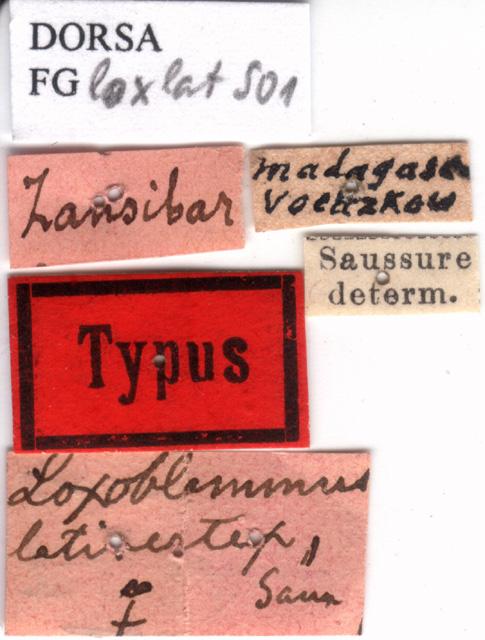 DORSA
FG loxlat S01
Zansibar
madagasc
Voeltzkow
Saussure
determ.
Typus
Loxoblemmus
Sauss
♀